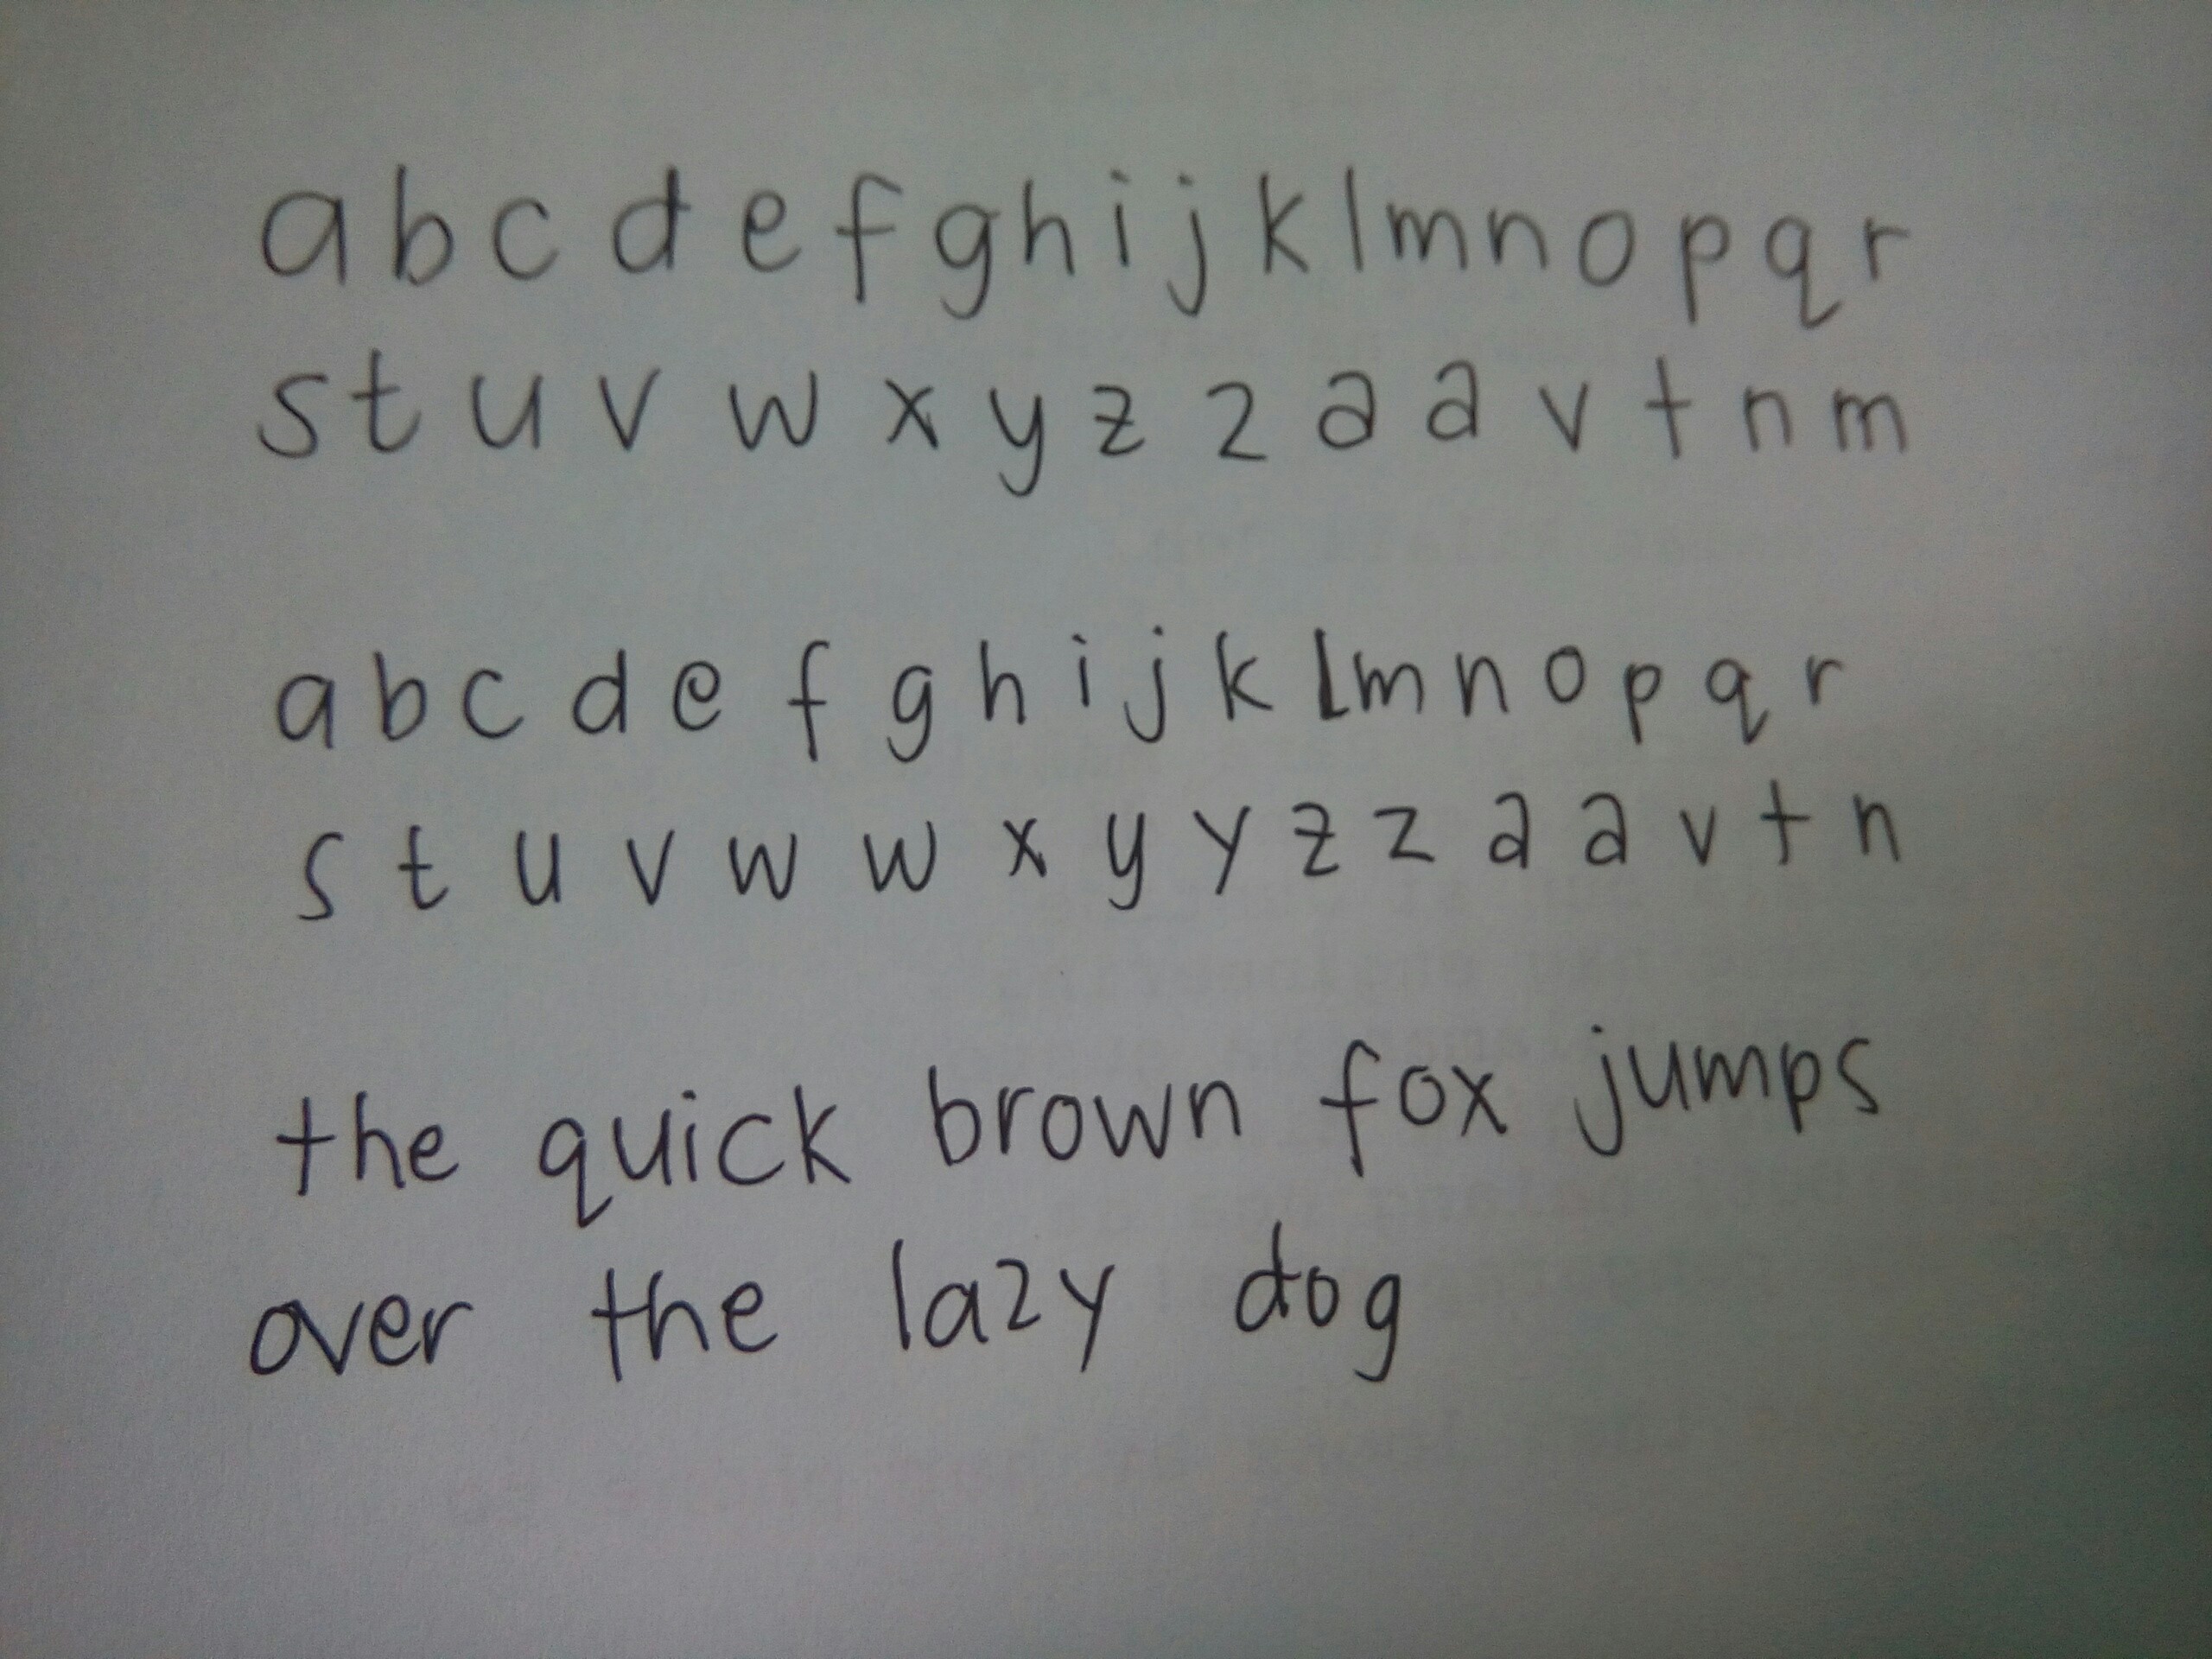 a b c d e f g h i j k l m n o p q r
s t u v w x y z z a a v t n m
a b c d e f g h i j k l m n o p q r
s t u v w w x y y z z a a v t n
the quick brown fox jumps
over the lazy dog